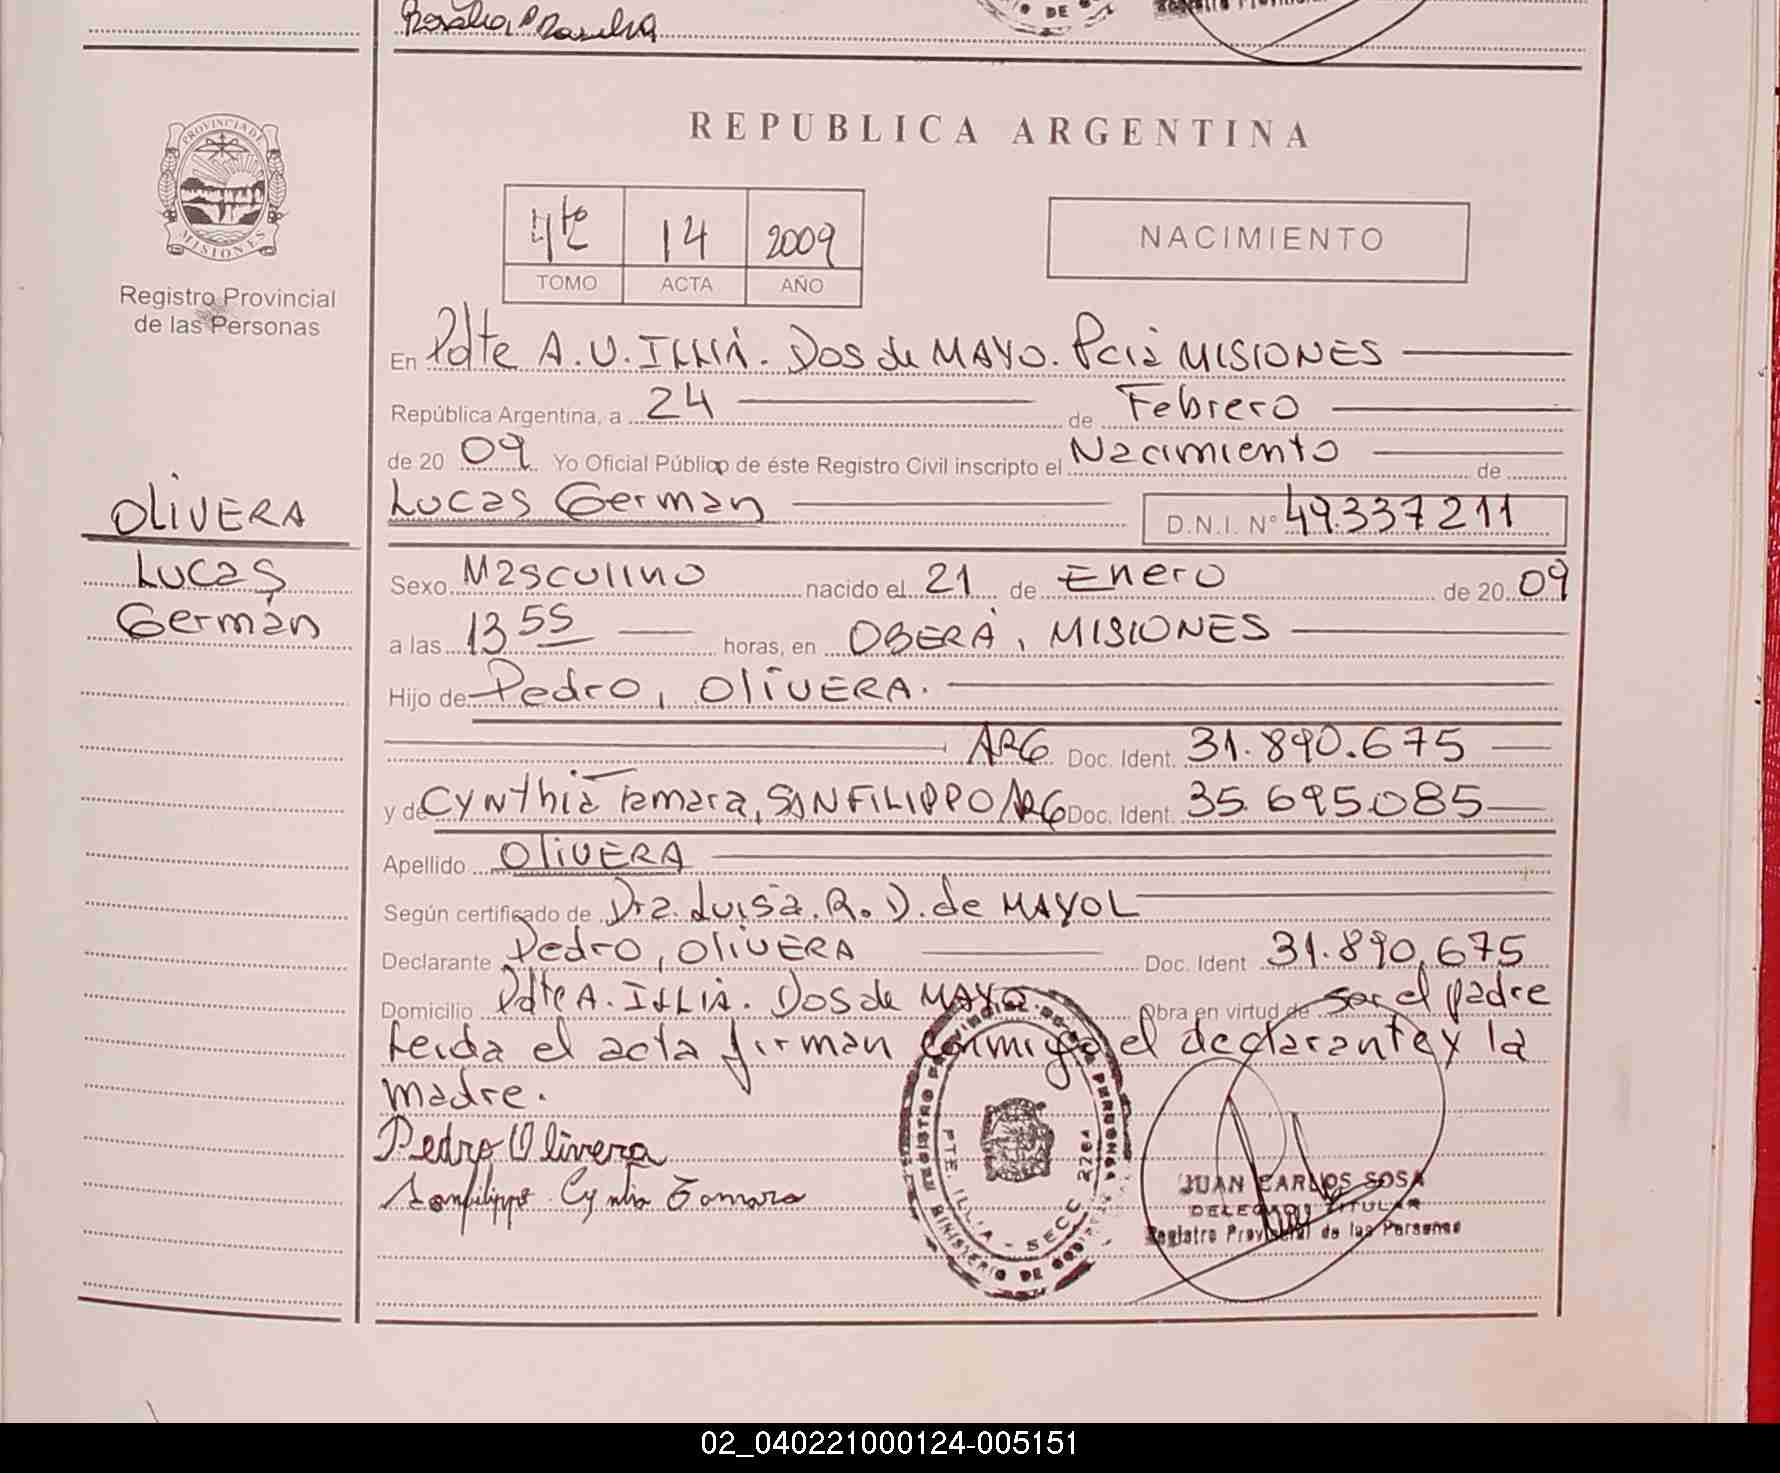 PROVINCIA DE
MISIONES
Registro Provincial
de las Personas
OLIVERA
Lucas
Germán
REPUBLICA ARGENTINA
4to 14 2009
TOMO ACTA AÑO
NACIMIENTO
En Pdte A.U. ILLIA. Dos de MAYO. Pcia MISIONES
República Argentina, a 24 de Febrero
de 20 09 Yo Oficial Público de éste Registro Civil inscripto el Nacimiento de
Lucas Germán D.N.I. N° 49.337211
Sexo Masculino nacido el 21 de Enero de 20 09
a las 13 55 horas, en OBERÁ, MISIONES
Hijo de Pedro, OLIVERA.
ARG Doc. Ident. 31.890.675
y de Cynthia Tamara, SANFILIPPO ARG Doc. Ident. 35.695.085
Apellido OLIVERA
Según certificado de Dra. Luisa. R. D. de MAYOL
Declarante Pedro, OLIVERA Doc. Ident 31.890.675
Domicilio Pdte A. ILLIA. Dos de MAYO. Obra en virtud de ser el padre
Leida el acta firman conmigo el declarante y la
madre.
Pedro Olivera
Sanfilippo Cyntia Tamara
REGISTRO PROVINCIAL DE LAS PERSONAS
PTE. ILLIA - SECC. 2264
MINISTERIO DE GOBIERNO
JUAN CARLOS SOSA
DELEGADO TITULAR
Registro Provincial de las Personas
02_040221000124-005151